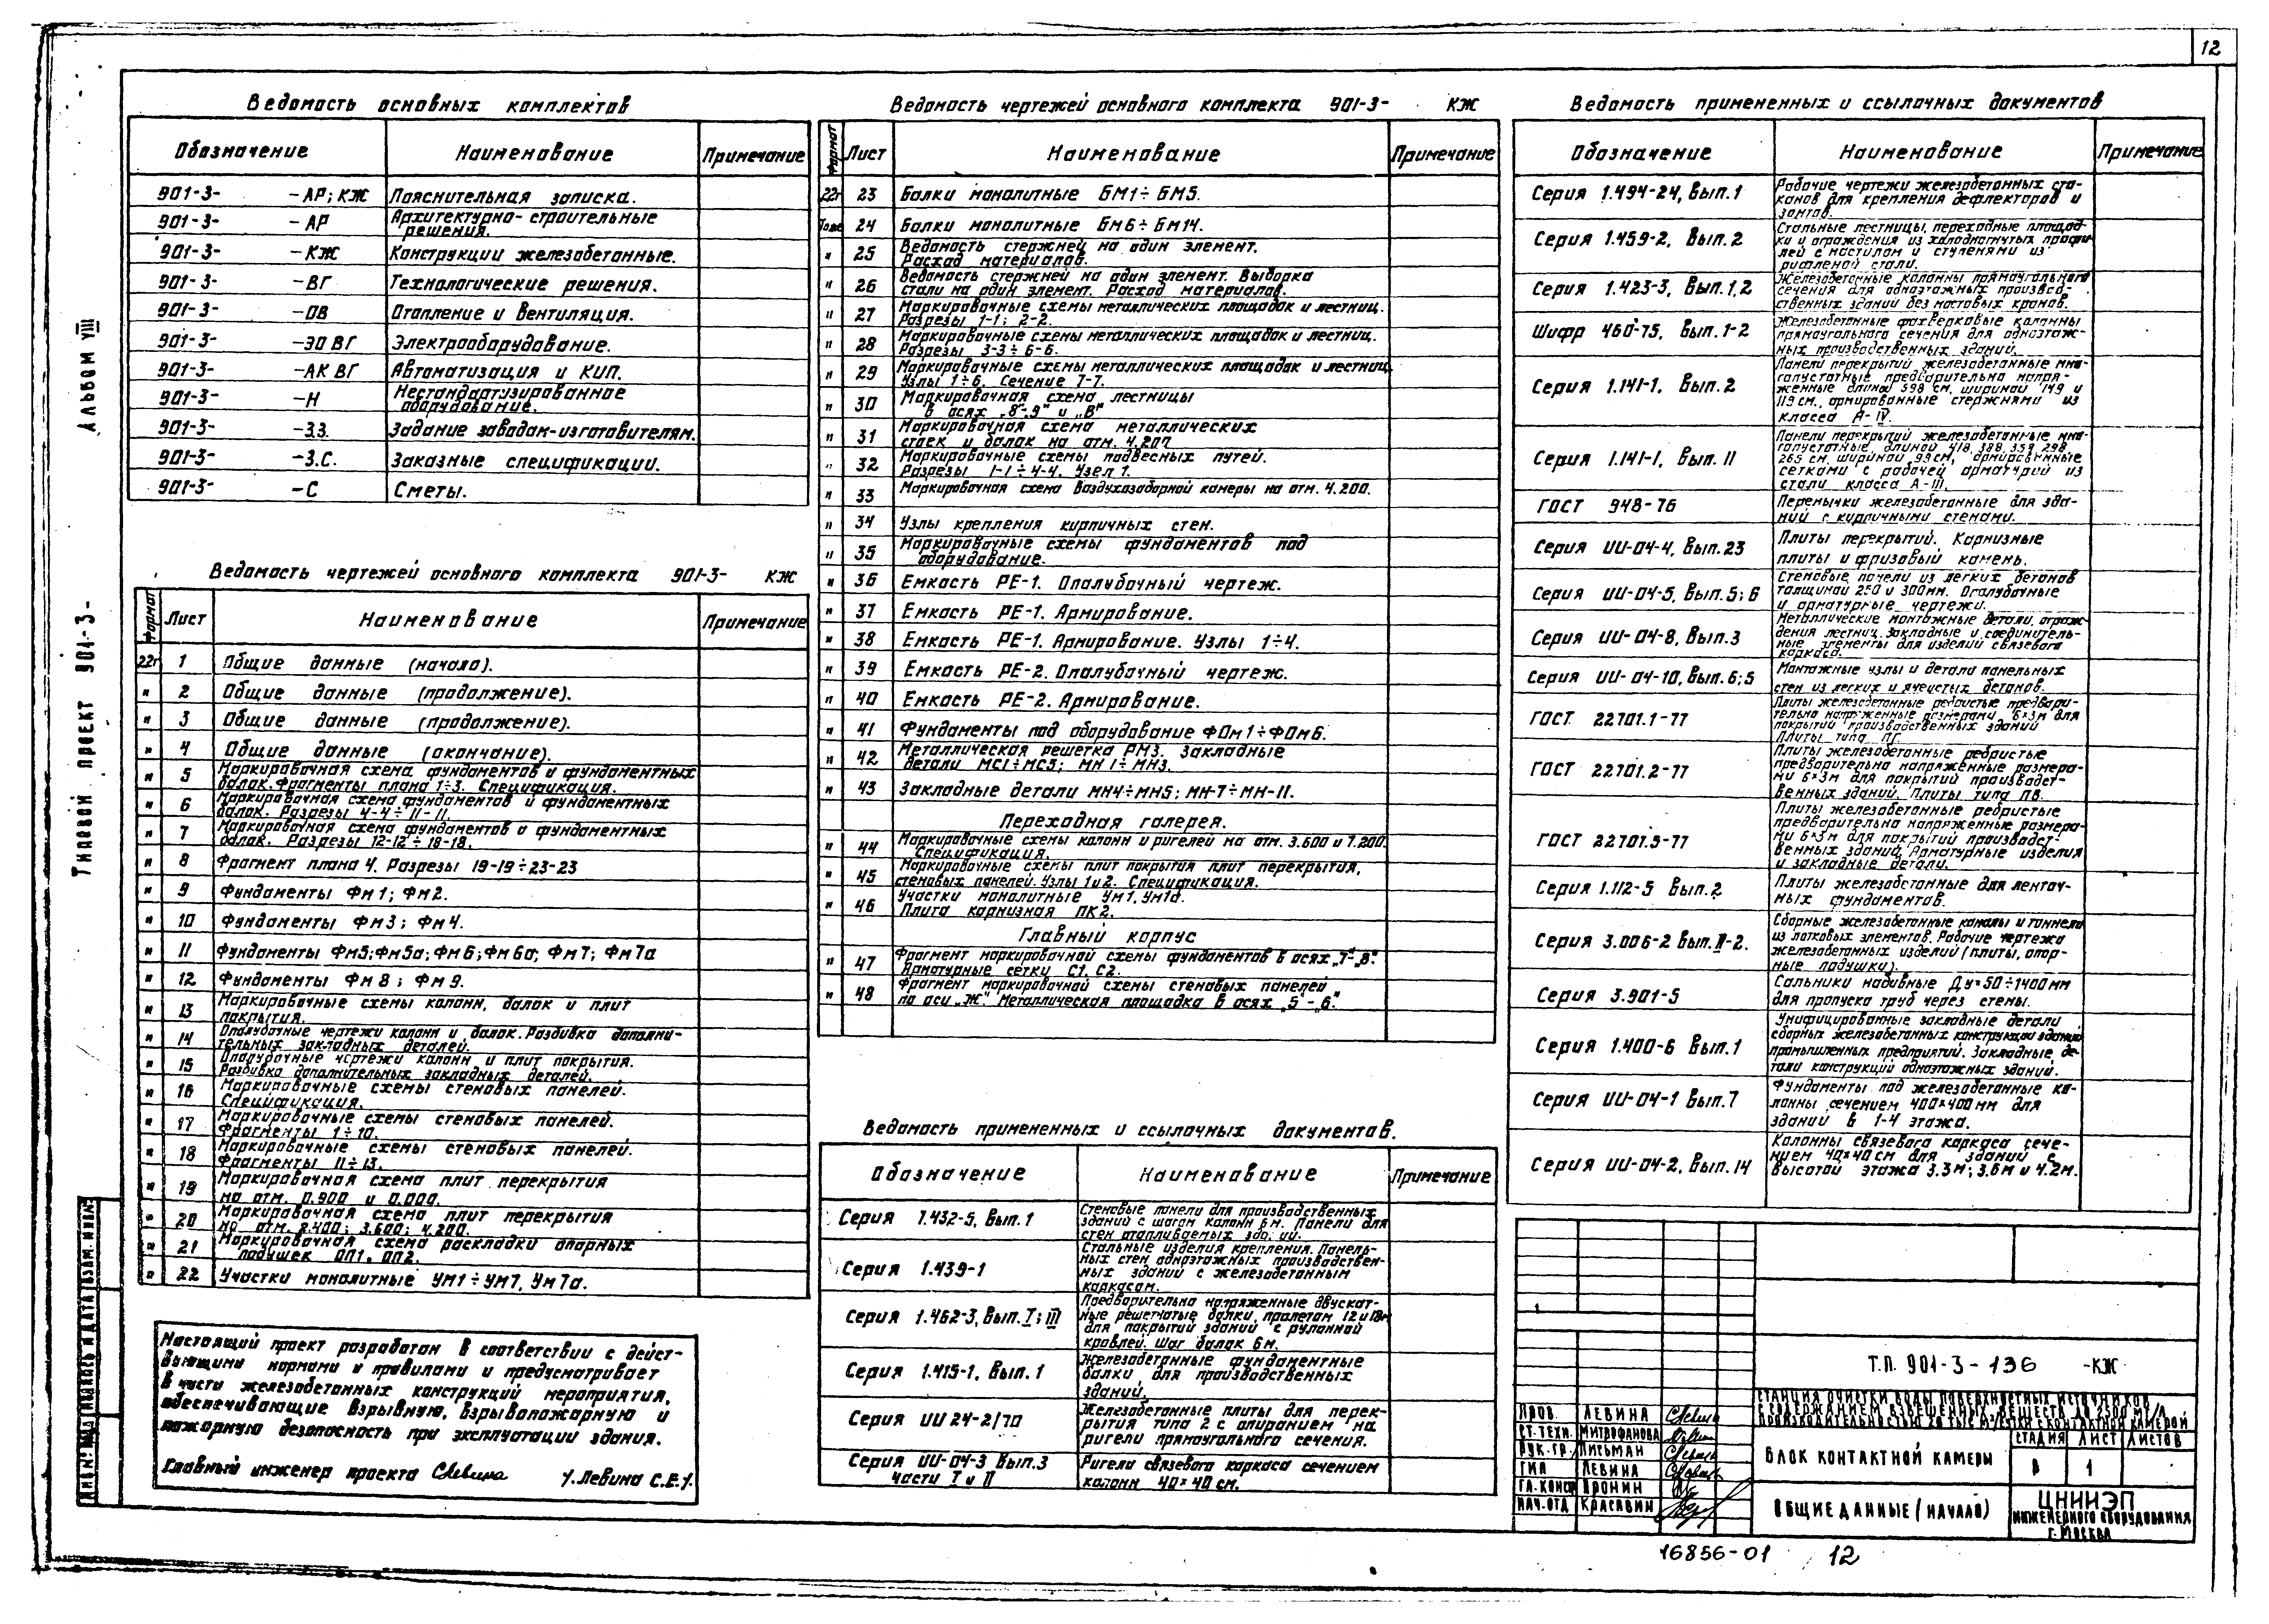 12
Альбом VIII
Типовой проект 901-3-
Ведомость основных комплектов
Обозначение Наименование Примечание
901-3- -АР; КЖ Пояснительная записка.
901-3- -АР Архитектурно-строительные
решения.
901-3- -КЖ Конструкции железобетонные.
901-3- -ВГ Технологические решения.
901-3- -ОВ Отопление и вентиляция.
901-3- -ЭО ВГ Электрооборудование.
901-3- -АК ВГ Автоматизация и КИП.
901-3- -Н Нестандартизированное
оборудование.
901-3- -З.З. Задание заводам-изготовителям.
901-3- -З.С. Заказные спецификации.
901-3- -С Сметы.
Ведомость чертежей основного комплекта 901-3- КЖ
Формат Лист Наименование Примечание
22г 1 Общие данные (начало).
" 2 Общие данные (продолжение).
" 3 Общие данные (продолжение).
" 4 Общие данные (окончание).
" 5 Маркировочная схема фундаментов и фундаментных
балок. Фрагменты плана 1÷3. Спецификация.
" 6 Маркировочная схема фундаментов и фундаментных
балок. Разрезы 4-4÷11-11.
" 7 Маркировочная схема фундаментов и фундаментных
балок. Разрезы 12-12÷18-18.
" 8 Фрагмент плана 4. Разрезы 19-19÷23-23
" 9 Фундаменты Фм1; Фм2.
" 10 Фундаменты Фм3; Фм4.
" 11 Фундаменты Фм5; Фм5а; Фм6; Фм6а; Фм7; Фм7а
" 12 Фундаменты Фм8; Фм9.
" 13 Маркировочные схемы колонн, балок и плит
покрытия.
" 14 Опалубочные чертежи колонн и балок. Разбивка дополни-
тельных закладных деталей.
" 15 Опалубочные чертежи колонн и плит покрытия.
Разбивка дополнительных закладных деталей.
" 16 Маркировочные схемы стеновых панелей.
Спецификация.
" 17 Маркировочные схемы стеновых панелей.
Фрагменты 1÷10.
" 18 Маркировочные схемы стеновых панелей.
Фрагменты 11÷13.
" 19 Маркировочная схема плит перекрытия
на отм. 0.900 и 0.000.
" 20 Маркировочная схема плит перекрытия
на отм. 2.400; 3.600; 4.200.
" 21 Маркировочная схема раскладки опорных
подушек ОП1, ОП2.
" 22 Участки монолитные УМ1÷УМ7, Ум7а.
Настоящий проект разработан в соответствии с дейст-
вующими нормами и правилами и предусматривает
в части железобетонных конструкций мероприятия,
обеспечивающие взрывную, взрывопожарную и
пожарную безопасность при эксплуатации здания.
Главный инженер проекта /Левина С.Е./
Ведомость чертежей основного комплекта 901-3- КЖ
Формат Лист Наименование Примечание
22г 23 Балки монолитные БМ1÷БМ5.
Тоже 24 Балки монолитные БМ6÷БМ14.
" 25 Ведомость стержней на один элемент.
Расход материалов.
" 26 Ведомость стержней на один элемент. Выборка
стали на один элемент. Расход материалов.
" 27 Маркировочные схемы металлических площадок и лестниц.
Разрезы 1-1; 2-2.
" 28 Маркировочные схемы металлических площадок и лестниц.
Разрезы 3-3÷6-6.
" 29 Маркировочные схемы металлических площадок и лестниц
Узлы 1÷6. Сечение 7-7.
" 30 Маркировочная схема лестницы
в осях „8-9" и „В"
" 31 Маркировочная схема металлических
стоек и балок на отм. 4.200
" 32 Маркировочные схемы подвесных путей.
Разрезы 1-1÷4-4. Узел 1.
" 33 Маркировочная схема воздухозаборной камеры на отм. 4.200.
" 34 Узлы крепления кирпичных стен.
" 35 Маркировочные схемы фундаментов под
оборудование.
" 36 Емкость РЕ-1. Опалубочный чертеж.
" 37 Емкость РЕ-1. Армирование.
" 38 Емкость РЕ-1. Армирование. Узлы 1÷4.
" 39 Емкость РЕ-2. Опалубочный чертеж.
" 40 Емкость РЕ-2. Армирование.
" 41 Фундаменты под оборудование ФОм1÷ФОм6.
" 42 Металлическая решетка РМ3. Закладные
детали МС1÷МС5; МН1÷МН3.
" 43 Закладные детали МН4÷МН5; МН-7÷МН-11.
Переходная галерея.
" 44 Маркировочные схемы колонн и ригелей на отм. 3.600 и 7.200.
Спецификация.
" 45 Маркировочные схемы плит покрытия плит перекрытия,
стеновых панелей. Узлы 1 и 2. Спецификация.
" 46 Участки монолитные Ум1, Ум1а.
Плита карнизная ПК2.
Главный корпус
" 47 Фрагмент маркировочной схемы фундаментов в осях „7"-„8".
Арматурные сетки С1, С2.
" 48 Фрагмент маркировочной схемы стеновых панелей
по оси „Ж". Металлическая площадка в осях „5"-„6".
Ведомость примененных и ссылочных документов.
Обозначение Наименование Примечание
Серия 1.432-5, Вып.1 Стеновые панели для производственных
зданий с шагом колонн 6м. Панели для
стен отапливаемых зданий.
Серия 1.439-1 Стальные изделия крепления. Панель-
ных стен одноэтажных производствен-
ных зданий с железобетонным
каркасом.
Серия 1.462-3, Вып. I; III Предварительно напряженные двускат-
ные решетчатые балки, пролетом 12 и 18м
для покрытий зданий с рулонной
кровлей. Шаг балок 6м.
Серия 1.415-1, Вып. 1 Железобетонные фундаментные
балки для производственных
зданий.
Серия ИИ 24-2/70 Железобетонные плиты для перек-
рытия типа 2 с опиранием на
ригели прямоугольного сечения.
Серия ИИ-04-3 Вып.3
части I и II Ригели связевого каркаса сечением
колонн 40×40 см.
Ведомость примененных и ссылочных документов
Обозначение Наименование Примечание
Серия 1.494-24, Вып.1 Рабочие чертежи железобетонных ста-
канов для крепления дефлекторов и
зонтов.
Серия 1.459-2, Вып. 2 Стальные лестницы, переходные площад-
ки и ограждения из холодногнутых профи-
лей с настилом и ступенями из
рифленой стали.
Серия 1.423-3, Вып.1,2 Железобетонные колонны прямоугольного
сечения для одноэтажных производ-
ственных зданий без мостовых кранов.
Шифр 460-75, Вып.1-2 Железобетонные фахверковые колонны
прямоугольного сечения для одноэтаж-
ных производственных зданий.
Серия 1.141-1, Вып. 2 Панели перекрытий железобетонные мно-
гопустотные предварительно напря-
женные длиной 598 см, шириной 149 и
119 см., армированные стержнями из
класса А-IV.
Серия 1.141-1, Вып. 11 Панели перекрытий железобетонные мно-
гопустотные, длиной 418, 388, 358, 298,
265 см, шириной 99см, армированные
сетками с рабочей арматурой из
стали класса А-III.
ГОСТ 948-76 Перемычки железобетонные для зда-
ний с кирпичными стенами.
Серия ИИ-04-4, Вып.23 Плиты перекрытий. Карнизные
плиты и фризовый камень.
Серия ИИ-04-5, Вып. 5; 6 Стеновые панели из легких бетонов
толщиной 250 и 300мм. Опалубочные
и арматурные чертежи.
Серия ИИ-04-8, Вып.3 Металлические монтажные детали, ограж-
дения лестниц, закладные и соединитель-
ные элементы для изделий связевого
каркаса.
Серия ИИ-04-10, Вып. 6; 5 Монтажные узлы и детали панельных
стен из легких и ячеистых бетонов.
ГОСТ 22701.1-77 Плиты железобетонные ребристые предвари-
тельно напряженные размерами 6×3м для
покрытий производственных зданий
Плиты типа ПГ.
ГОСТ 22701.2-77 Плиты железобетонные ребристые
предварительно напряженные размера-
ми 6×3м для покрытий производст-
венных зданий. Плиты типа ПВ.
ГОСТ 22701.5-77 Плиты железобетонные ребристые
предварительно напряженные размера-
ми 6×3м для покрытий производст-
венных зданий. Арматурные изделия
и закладные детали.
Серия 1.112-5 Вып. 2 Плиты железобетонные для ленточ-
ных фундаментов.
Серия 3.006-2 Вып. II-2. Сборные железобетонные каналы и тоннели
из лотковых элементов. Рабочие чертежа
железобетонных изделий (плиты, опор-
ные подушки).
Серия 3.901-5 Сальники набивные Ду=50÷1400мм
для пропуска труб через стены.
Серия 1.400-6 Вып.1 Унифицированные закладные детали
сборных железобетонных конструкций зданий
промышленных предприятий. Закладные де-
тали конструкций одноэтажных зданий.
Серия ИИ-04-1 Вып.7 Фундаменты под железобетонные ко-
лонны сечением 400×400 мм для
зданий в 1-4 этажа.
Серия ИИ-04-2, Вып. 14 Колонны связевого каркаса сече-
нием 40×40 см для зданий с
высотой этажа 3.3м; 3.6м и 4.2м.
Т.П. 901-3-136 -КЖ
Станция очистки воды поверхностных источников
с содержанием взвешенных веществ до 2500 мг/л
производительностью 20 тыс м3/сутки с контактной камерой
Пров. Левина
Ст.техн. Митрофанова
Рук.гр. Письман
ГИП Левина
Гл.конст Аронин
Нач.отд Красавин
Блок контактной камеры
Стадия Лист Листов
Р 1
Общие данные (начало)
ЦНИИЭП
инженерного оборудования
г. Москва
Инв.№ подл. Подпись и дата Взам. инв.№
16856-01 12